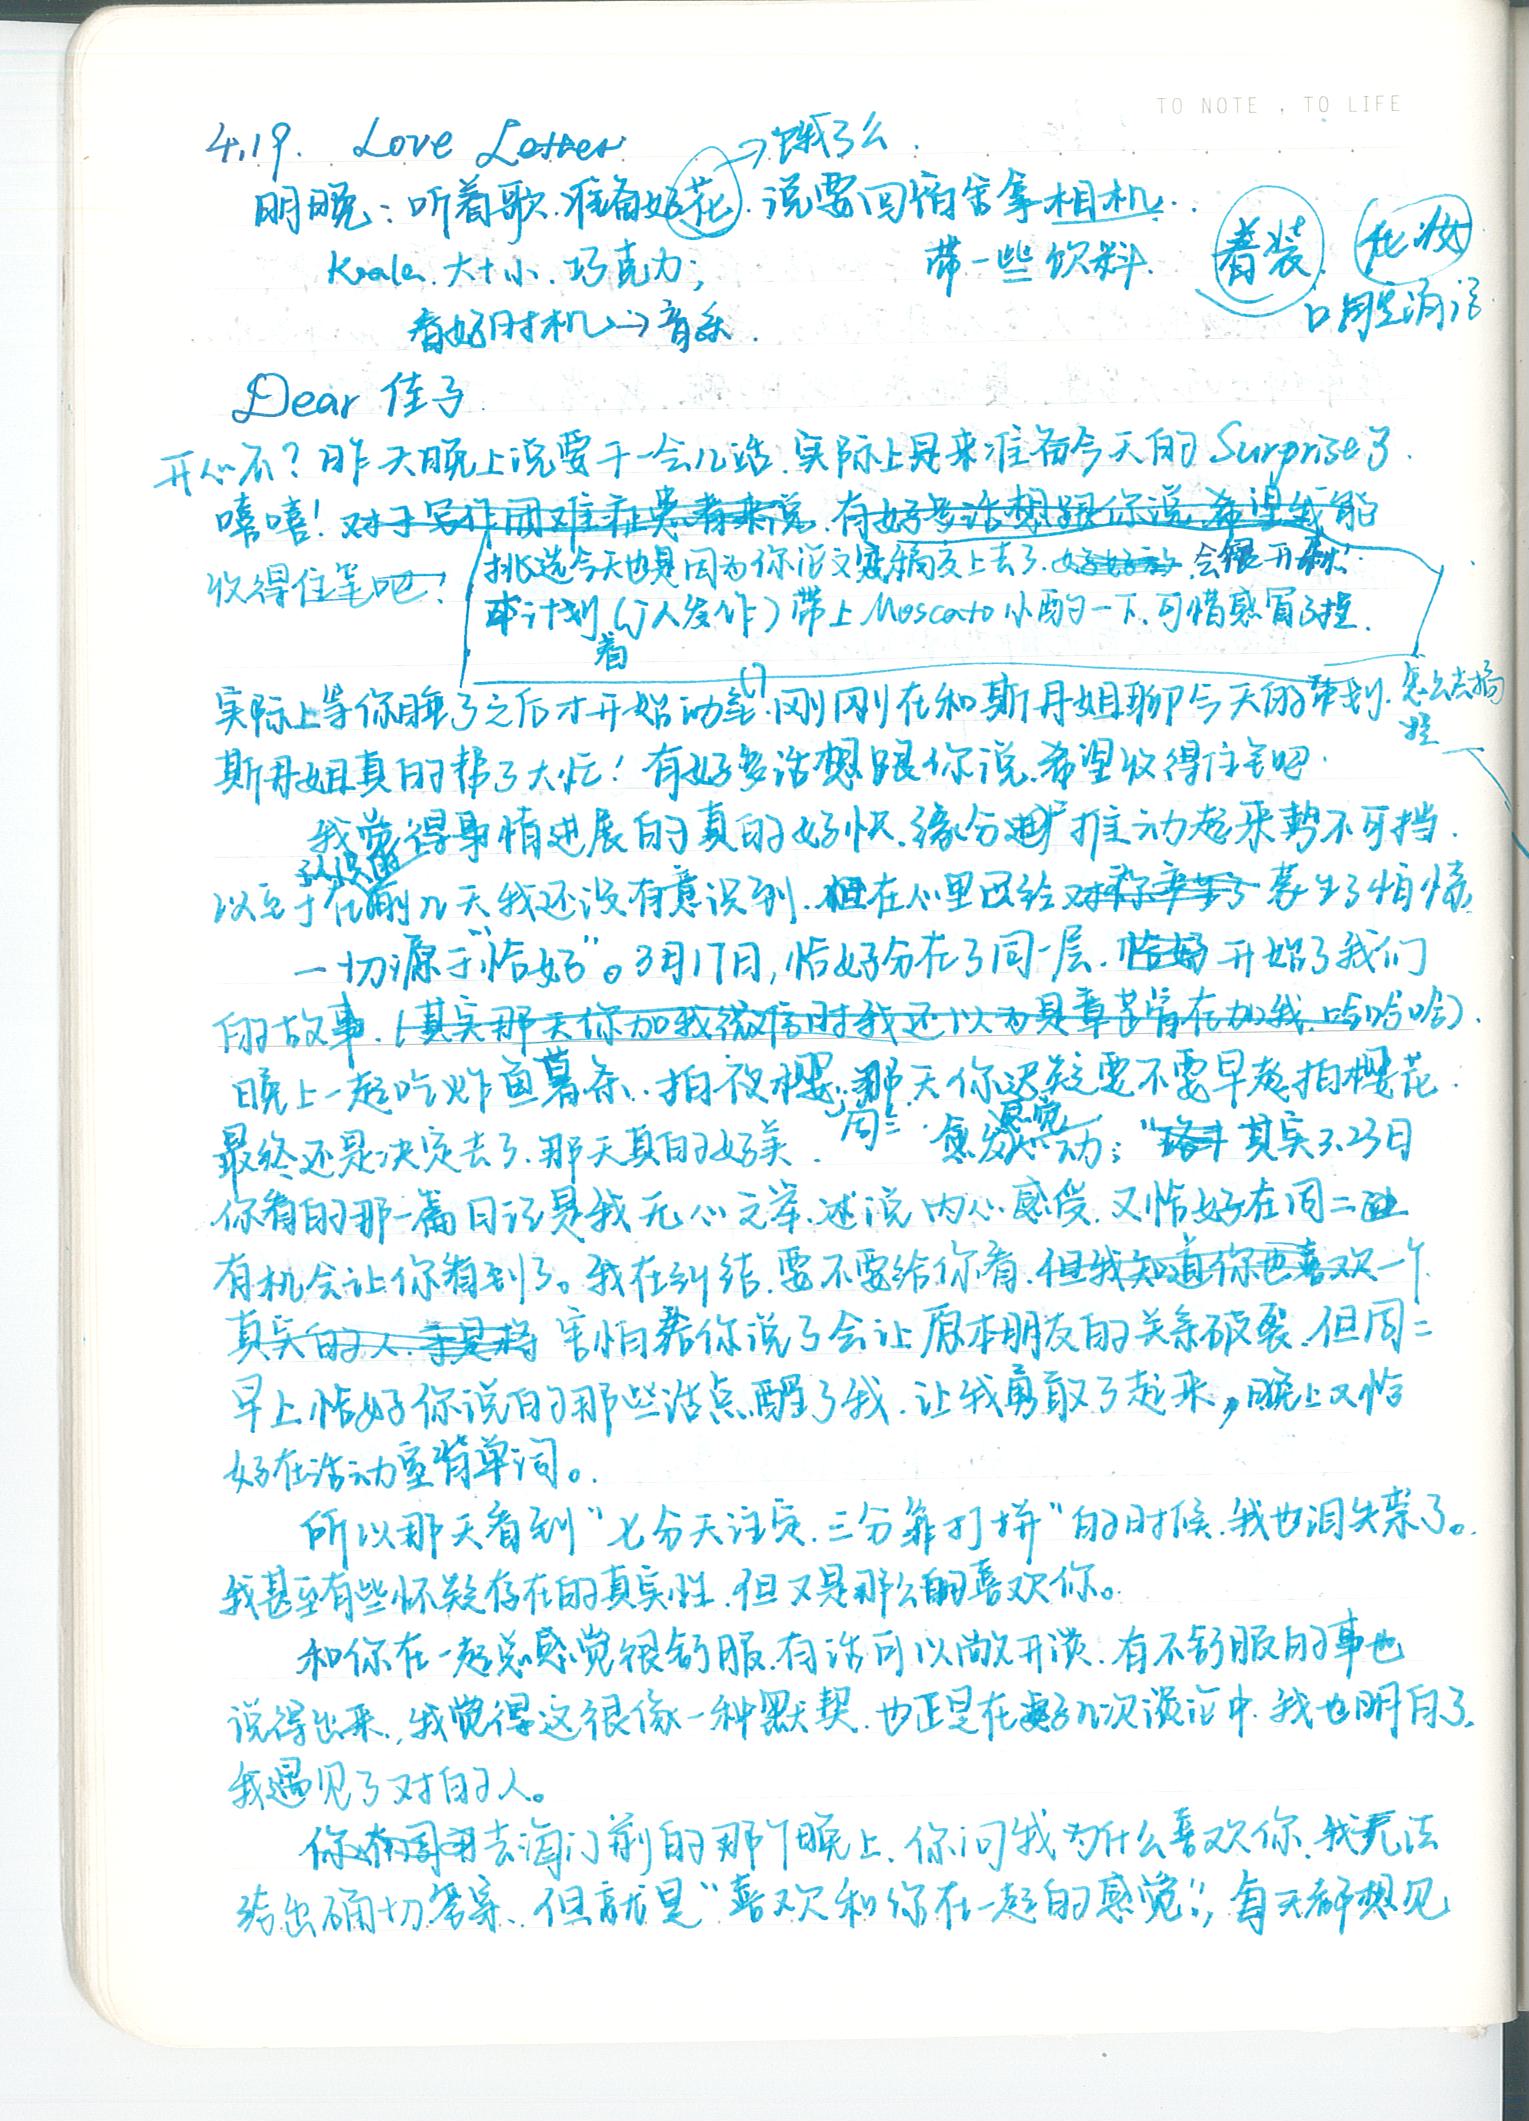 TO NOTE , TO LIFE
4.19. Love Letter → 饿了么.
明晚：听着歌.准备好花.说要回宿舍拿相机..
Koala 大+小.巧克力; 带一些饮料. 着装. 化妆
看好时机 → 音乐. 口腔清洁
Dear 佳子.
开心不？昨天晚上说要干一会儿活.实际上是来准备今天的Surprise了.
嘻嘻！对于写作困难症患者来说.有好多话想跟你说.希望我能
收得住笔吧！
挑选今天也是因为你论文定稿交上去了.好好 会很开心.
本计划(丁人发作)带上Moscato小酌一下.可惜感冒了
着
实际上等你睡了之后才开始动笔.刚刚在和斯丹姐聊今天的策划. 怎么去搞
斯丹姐真的帮了大忙！有好多话想跟你说.希望收得住笔吧.
我觉得事情进展的真的好快.缘分 推动起来势不可挡.
认识的
以至于在前几天我还没有意识到.但在心里已经对你产生了 生了情愫
一切源于"恰好"。3月17日,恰好分在了同一层.恰好 开始了我们
的故事.(其实那天你加我微信时我还以为是 在加我.哈哈哈).
晚上一起吃炸鱼薯条.拍夜樱.那天你迟疑要不要早起拍樱花.
最终还是决定去了.那天真的好美. 周三. 愈发感觉心动; 其实3.23日
你看的那一篇日记是我无心之举.述说内心感受.又恰好在周二
有机会让你看到了。我在纠结.要不要给你看.但我知道你也喜欢一个
真实的人.于是将 害怕 你说了会让原本朋友的关系破裂.但周二
早上恰好你说的那些话点醒了我.让我勇敢了起来,晚上又恰
好在活动室背单词。
所以那天看到"七分天注定.三分靠打拼"的时候.我也泪失禁了。
我甚至有些怀疑存在的真实性.但又是那么的喜欢你。
和你在一起总感觉很舒服.有话可以敞开谈.有不舒服的事也
说得出来,我觉得这很像一种默契.也正是在好几次谈论中.我也明白了.
我遇见了对的人。
你 去海门前的那个晚上.你问我为什么喜欢你.我无法
给出确切答案.但就是"喜欢和你在一起的感觉",每天都想见